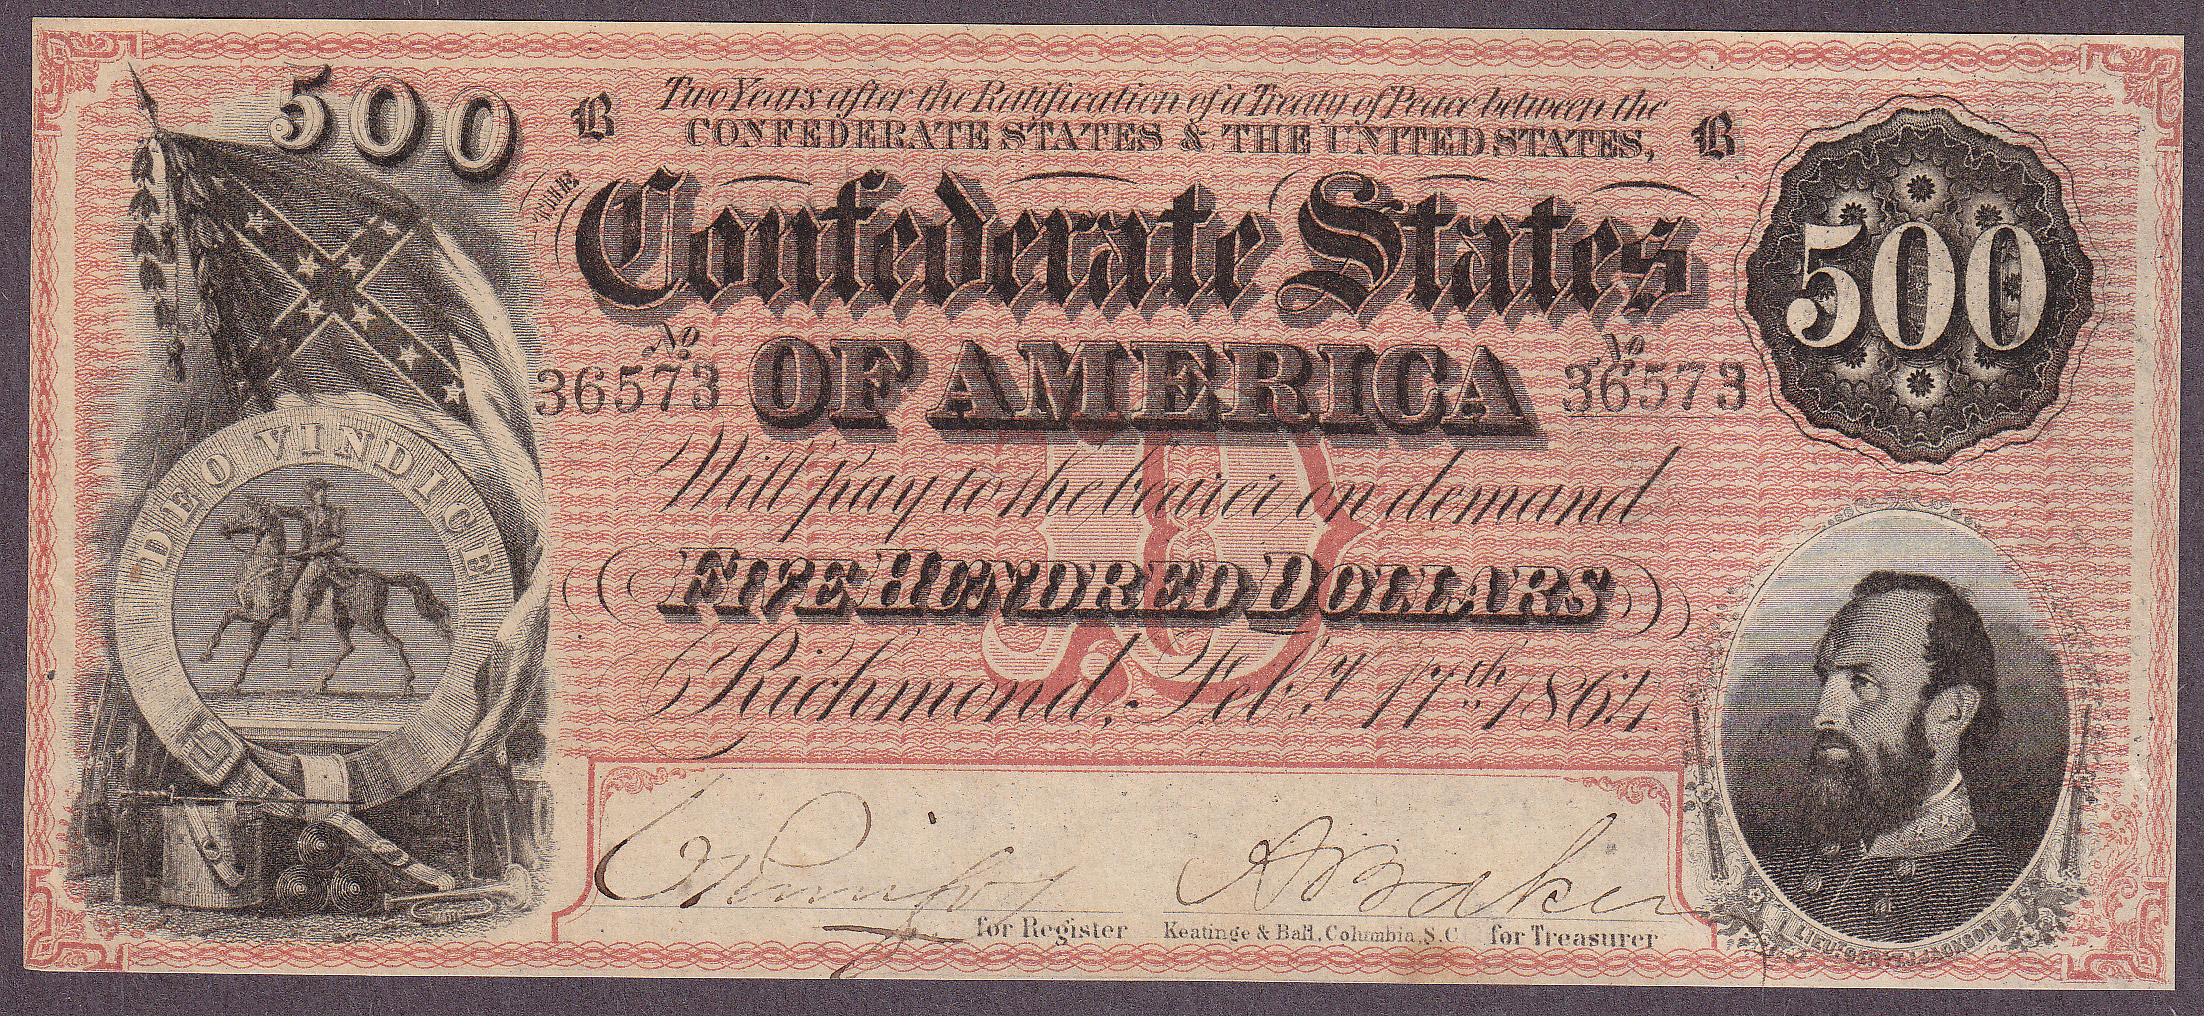 500
B
Two Years after the Ratification of a Treaty of Peace between the
B
CONFEDERATE STATES & THE UNITED STATES,
THE
Confederate States
500
No
36573
OF AMERICA
No
36573
DEO VINDICE
Will pay to the bearer on demand
B
FIVE HUNDRED DOLLARS
Richmond, Feb.y 17th 1864.
A B Baker
for Register
Keatinge & Ball, Columbia, S.C.
for Treasurer
LIEUT. GEN. T.J. JACKSON